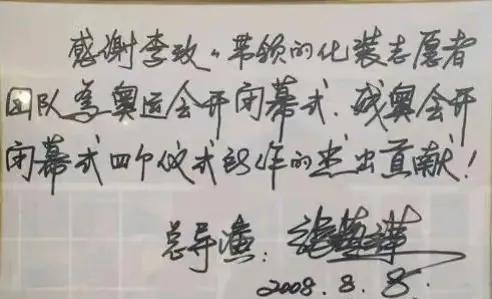 感谢李玫、带领的化装志愿者
团队為奥运会开闭幕式、残奥会开
闭幕式四个仪式所作的杰出贡献！
总导演：张艺谋
2008.8.8.